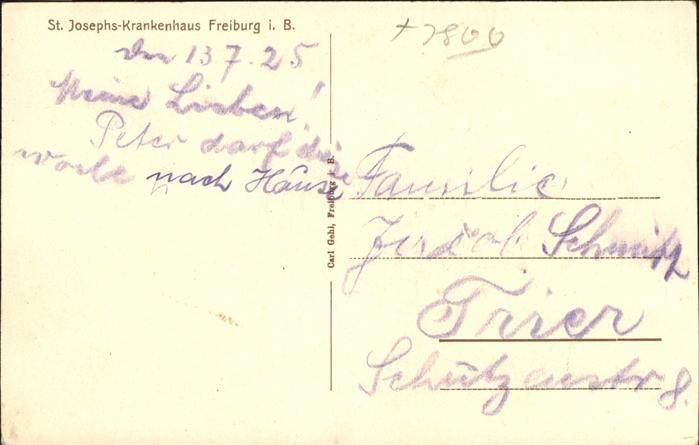 St. Josephs-Krankenhaus Freiburg i. B.
+ 7800
den 13 7. 25
Meine Lieben!
Peter darf diese
woche nach Hause
Carl Gehl, Freiburg i. B.
Familie
Jacob Schmitz
Trier
Schützenstr 8.